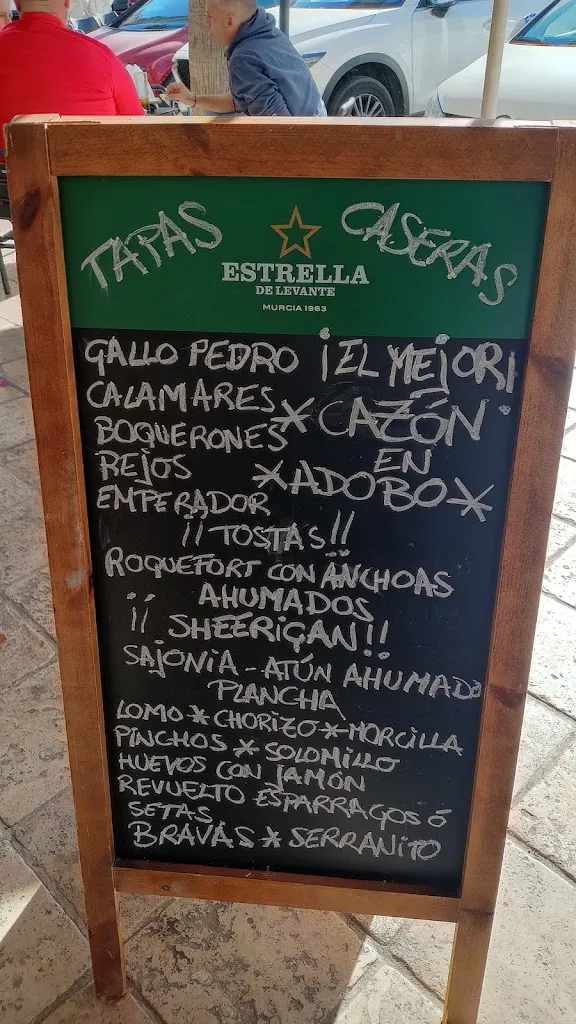 TAPAS CASERAS
ESTRELLA
DE LEVANTE
MURCIA 1963
GALLO PEDRO ¡EL MEJOR!
CALAMARES
*CAZÓN
BOQUERONES
EN
REJOS
*ADOBO*
EMPERADOR
¡¡TOSTAS!!
ROQUEFORT CON ANCHOAS
AHUMADOS
¡¡ SHEERIGAN!!
SAJONIA - ATÚN AHUMADO
PLANCHA
LOMO * CHORIZO * MORCILLA
PINCHOS * SOLOMILLO
HUEVOS CON JAMÓN
REVUELTO ESPARRAGOS Ó
SETAS
BRAVAS * SERRANITO